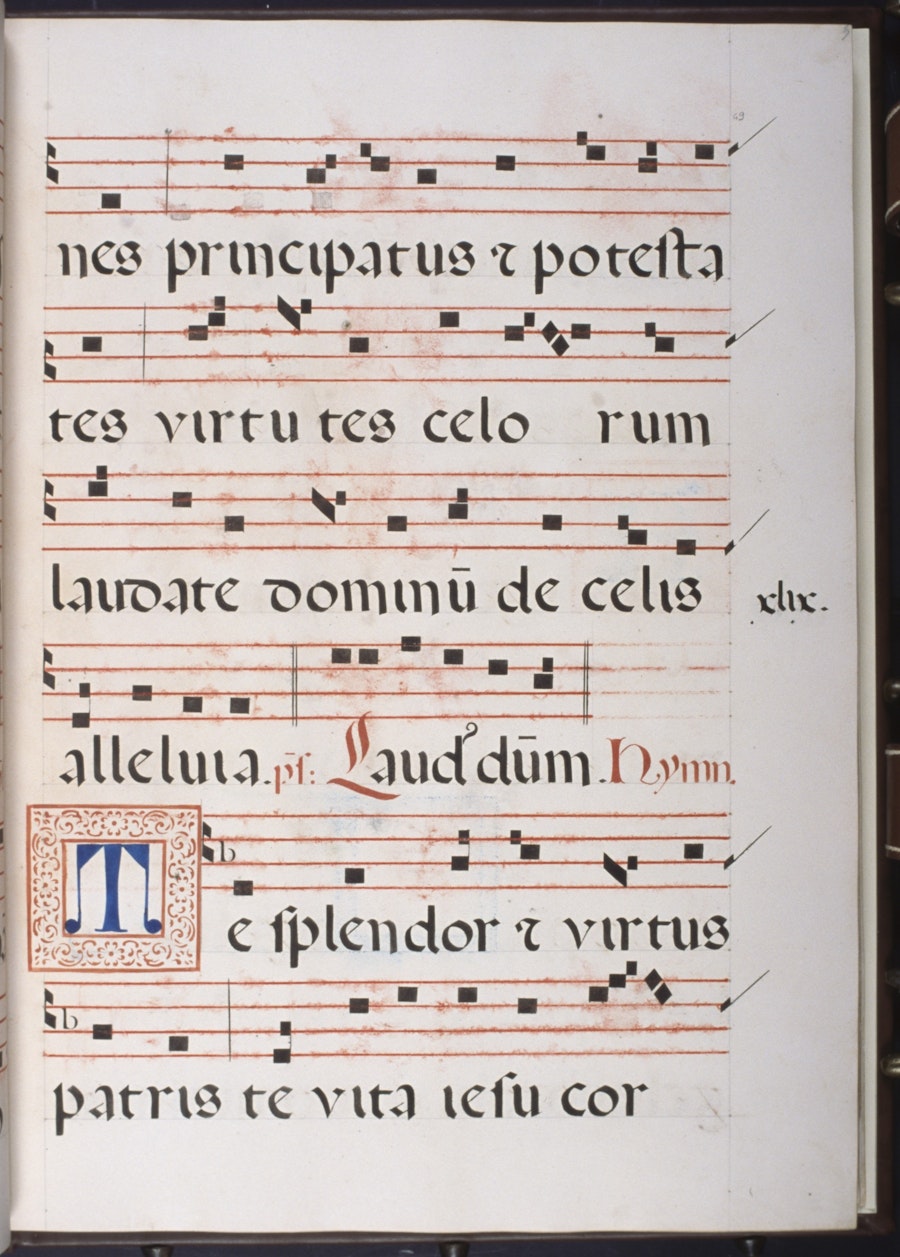 49
nes principatus ⁊ poteſta
tes virtutes celorum
laudate dominū de celis
xlix.
alleluia. p̄ſ: Laud' dūm. Hymn.
b
Te ſplendor ⁊ virtus
b
patris te vita ieſu cor